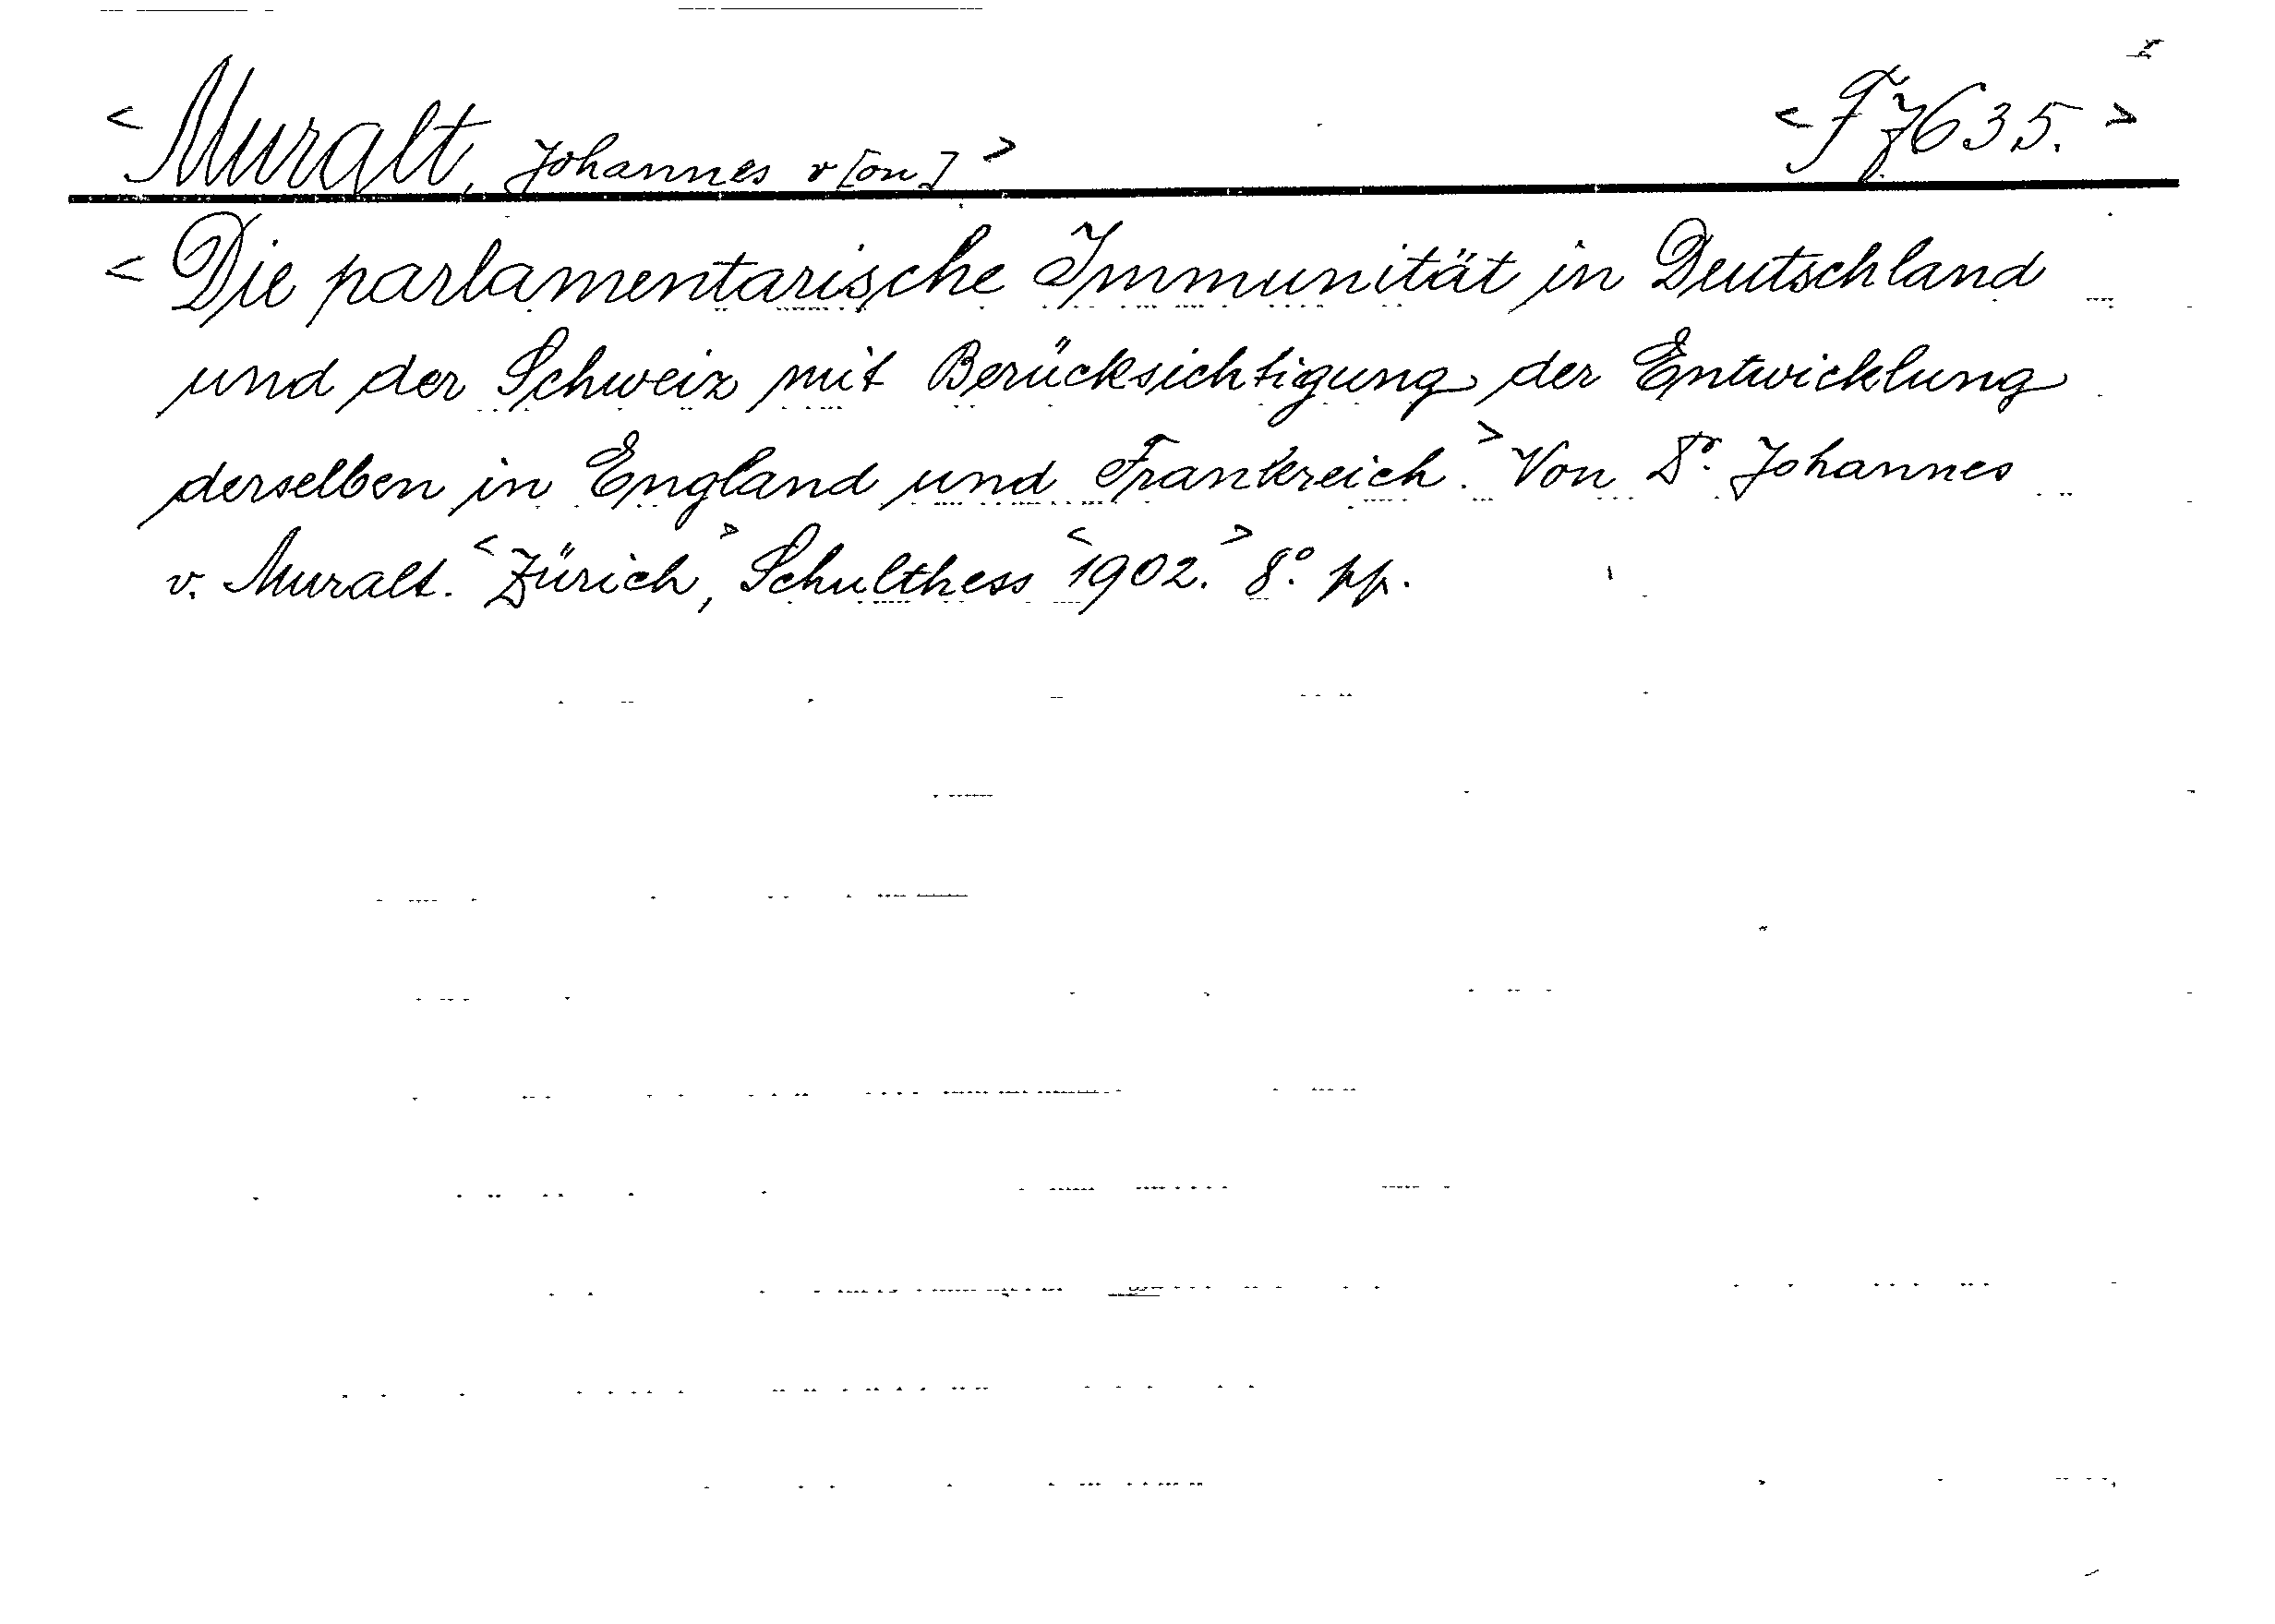 < Muralt, Johannes v[on] > < F 7635. >
< Die parlamentarische Immunität in Deutschland
und der Schweiz mit Berücksichtigung der Entwicklung
derselben in England und Frankreich. > Von Dr. Johannes
v. Muralt. < Zürich, > Schulthess < 1902. > 8°. pp.